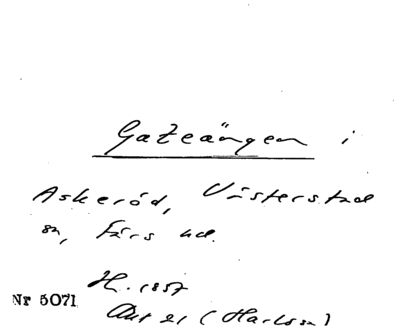 Gateängen i
Askeröd, Västerstad
sn, Färs hd.
H. 1857
Nr 5071
Akt 21 (Karlson)